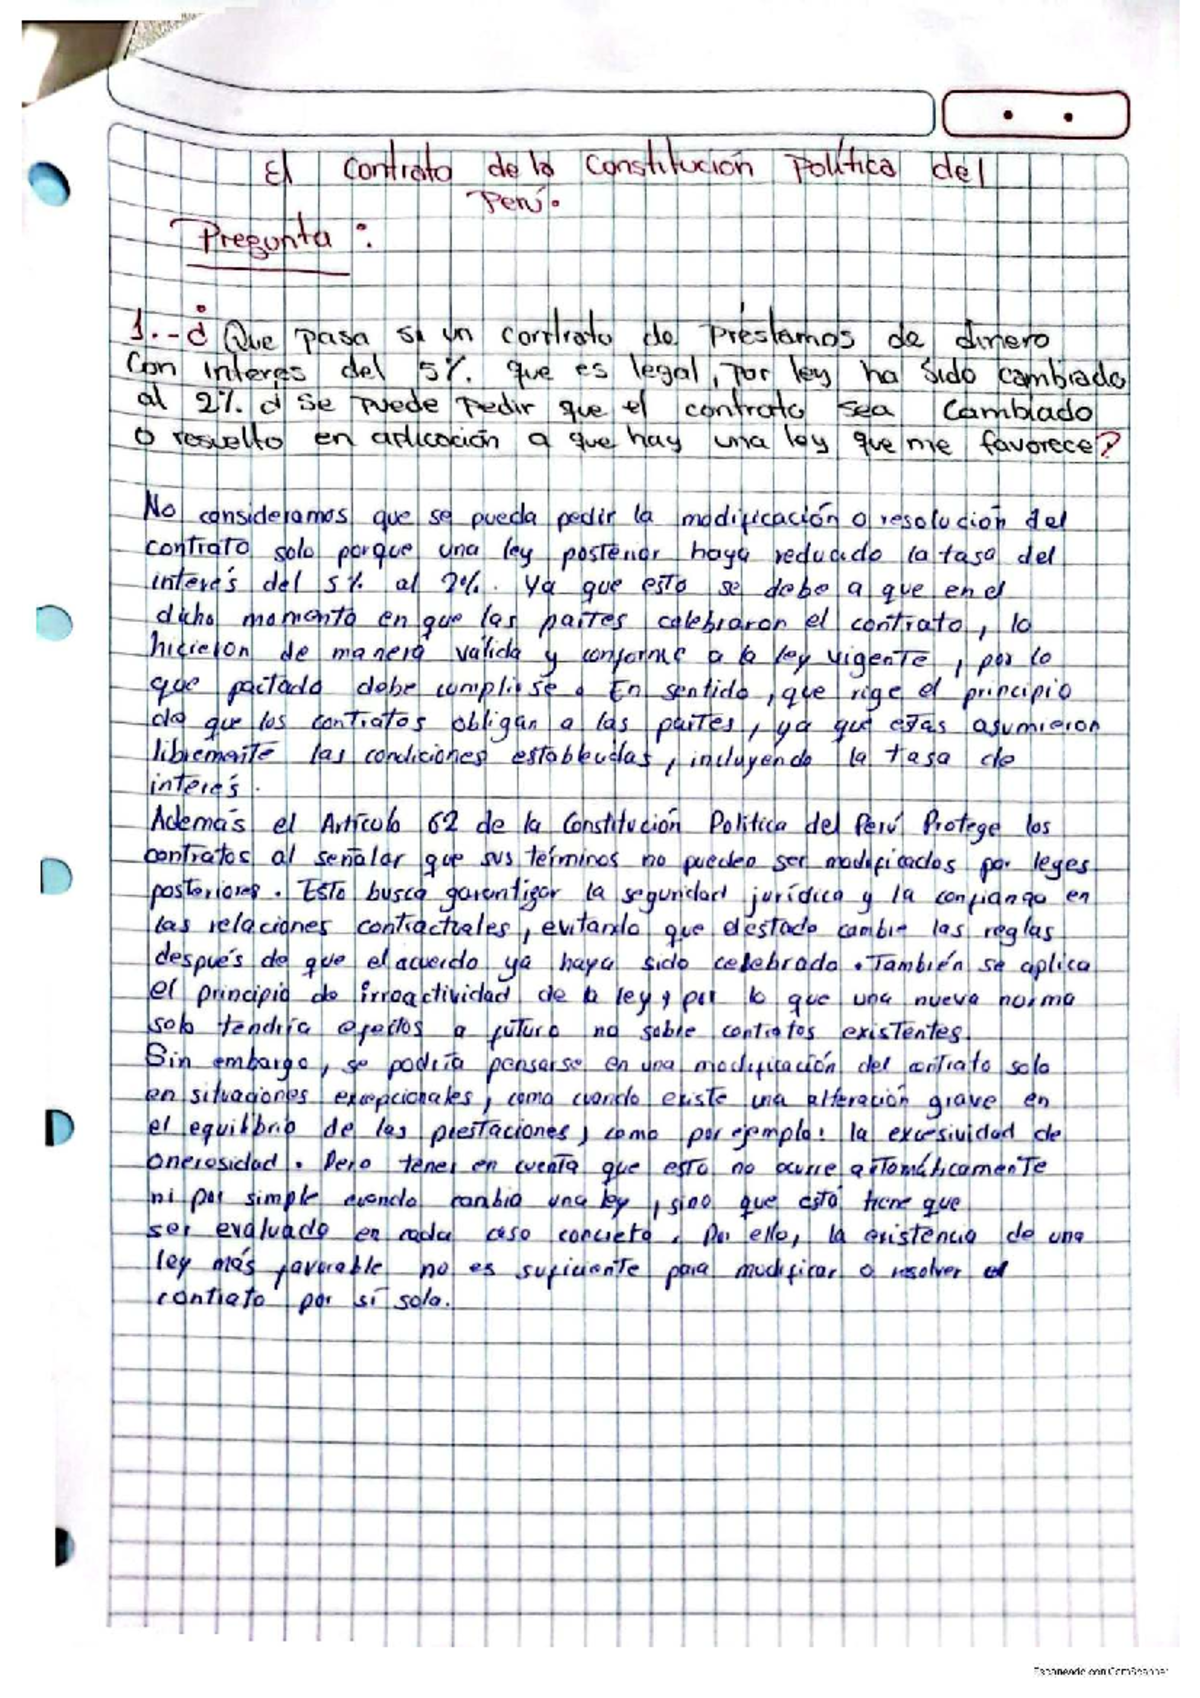 El contrato de la Constitución Política del
Perú.
Pregunta :
1.-¿ Que pasa si un contrato de préstamos de dinero
Con interes del 5%. que es legal, por ley ha sido cambiado
al 2%. ¿ Se puede pedir que el contrato sea cambiado
o resuelto en aplicación a que hay una ley que me favorece?
No consideramos que se pueda pedir la modificación o resolución del
contrato solo porque una ley posterior haya reducido la tasa del
interés del 5% al 2%. Ya que esto se debe a que en el
dicho momento en que las partes celebraron el contrato, lo
hicieron de manera válida y conforme a la ley vigente, por lo
que pactado debe cumplirse. En sentido, que rige el principio
de que los contratos obligan a las partes, ya que estas asumieron
libremente las condiciones establecidas, incluyendo la tasa de
interés.
Además el Artículo 62 de la Constitución Politica del Perú Protege los
contratos al señalar que sus términos no pueden ser modificados por leges
posteriores. Esto busca garantizar la seguridad jurídica y la confianza en
las relaciones contractuales, evitando que el estado cambie las reglas
después de que el acuerdo ya haya sido celebrado. También se aplica
el principio de irroactividad de la ley, por lo que una nueva norma
solo tendría efectos a futuro no sobre contratos existentes.
Sin embargo, se podría pensarse en una modificación del contrato solo
en situaciones excepcionales, como cuando existe una alteración grave en
el equilibrio de las prestaciones, como por ejemplo: la excesividad de
onerosidad. Pero tener en cuenta que esto no ocurre automáticamente
ni por simple cuando cambia una ley, sino que está tiene que
ser evaluado en cada caso concreto. Por ello, la existencia de una
ley más favorable no es suficiente para modificar o resolver el
contrato por sí sola.
Escaneado con CamScanner